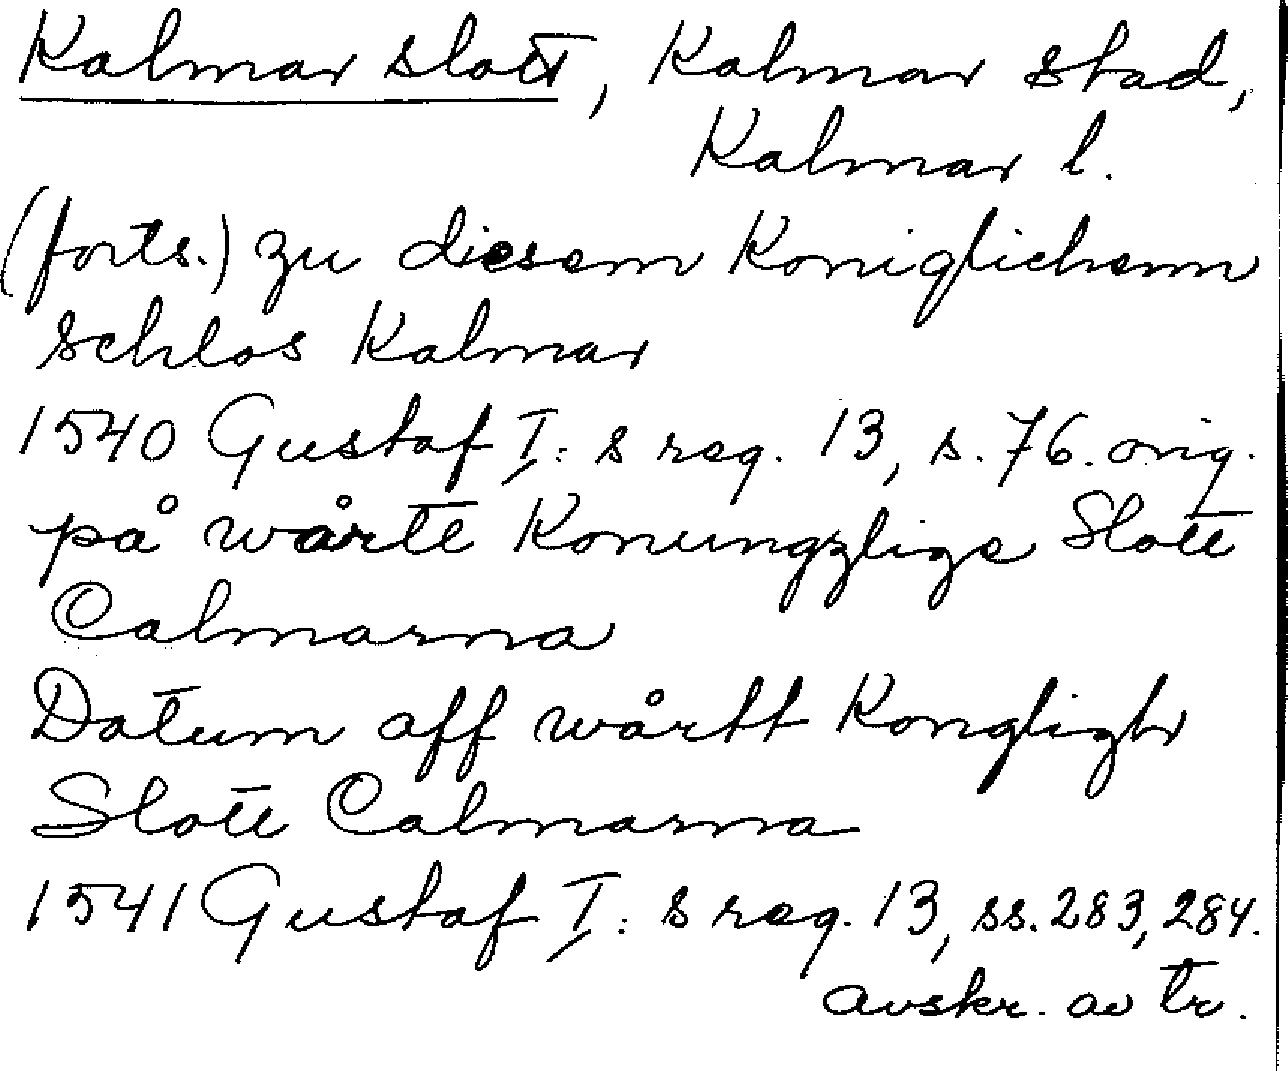 Kalmar slott, Kalmar stad,
Kalmar l.
(forts.) zu diesem Koniglichenn
schlos Kalmar
1540 Gustaf I:s reg. 13, s. 76. orig.
på wårtt Konungzlige Slott
Calmarna
Datum aff wårtt Kongligh
Slott Calmarna
1541 Gustaf I:s reg. 13, ss. 283, 284.
avskr. av tr.